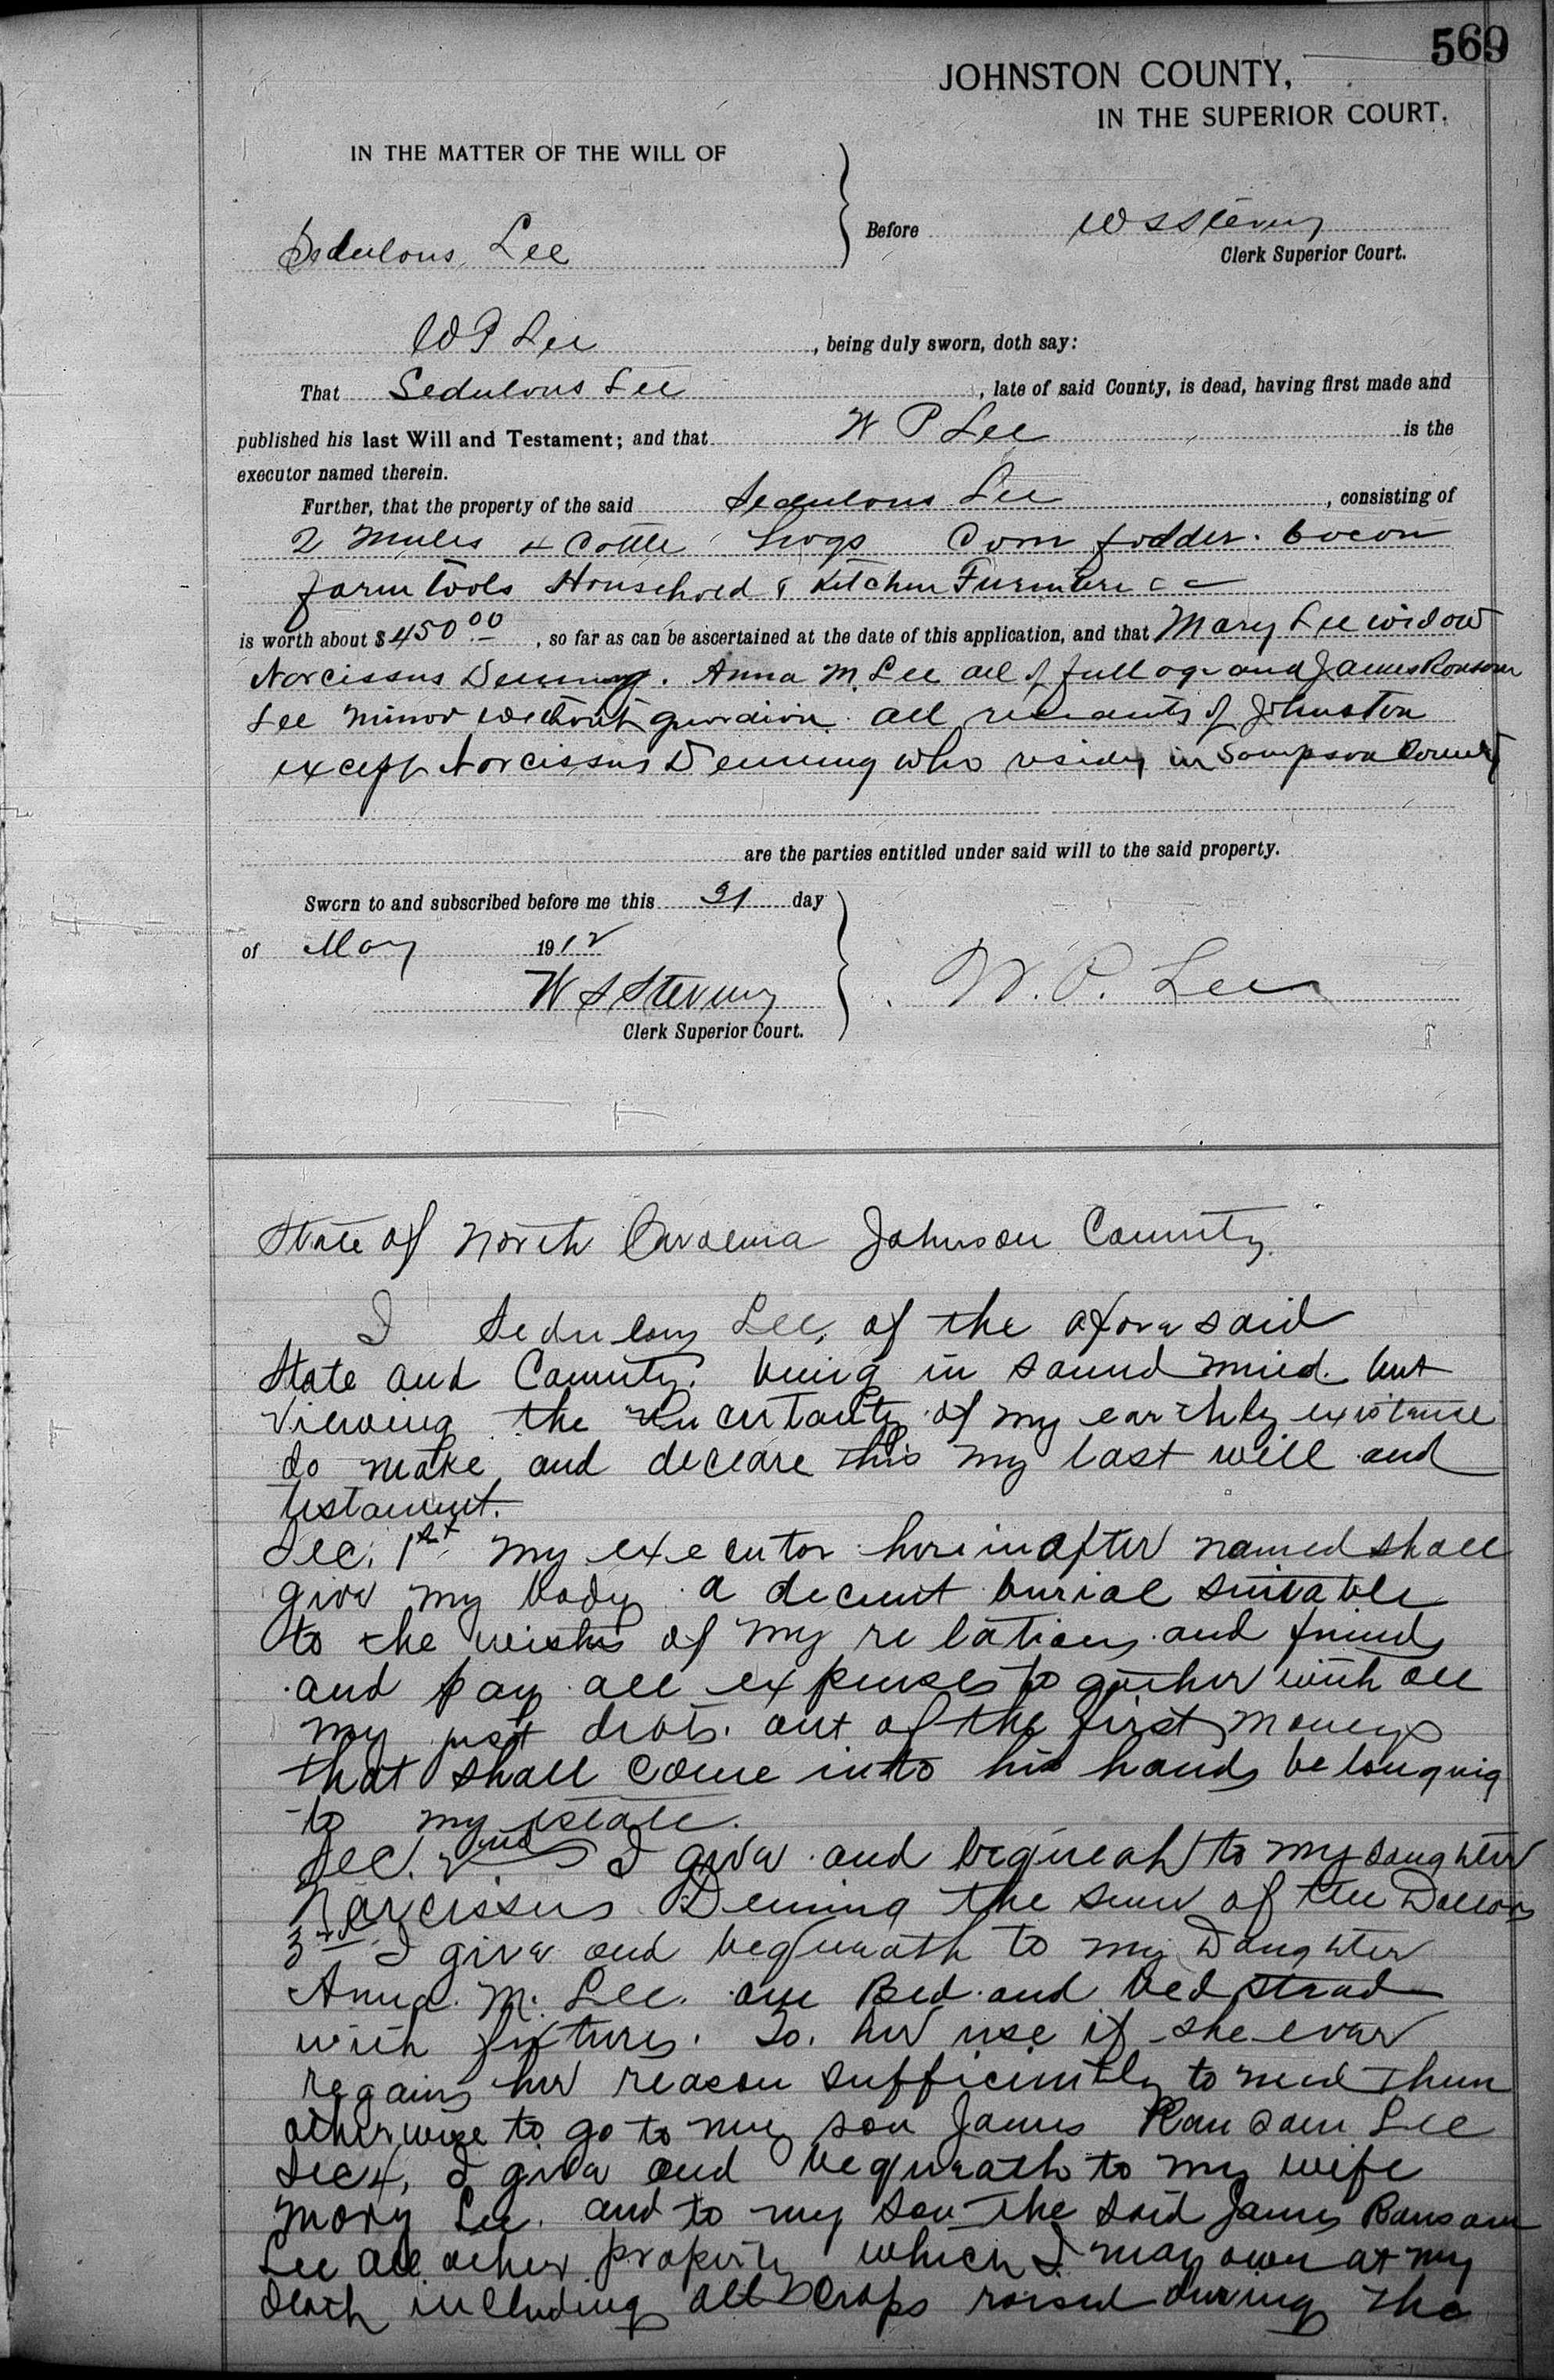 569
JOHNSTON COUNTY,
IN THE SUPERIOR COURT.
IN THE MATTER OF THE WILL OF
Sedulous Lee
Before W S Stevens
Clerk Superior Court.
W P Lee, being duly sworn, doth say:
That Sedulous Lee, late of said County, is dead, having first made and
published his last Will and Testament; and that W P Lee is the
executor named therein.
Further, that the property of the said Sedulous Lee, consisting of
2 Mules 4 Cattle Hogs Corn fodder. bacon
farm tools Household & Kitchen Furniture
is worth about $450 00, so far as can be ascertained at the date of this application, and that Mary Lee widow
Narcissus Denning. Anna M. Lee all of full age and James Ransom
Lee minor without guardian. all residents of Johnston
except Narcissus Denning who resides in Sampson County
are the parties entitled under said will to the said property.
Sworn to and subscribed before me this 31 day
of May 1912
W S Stevens
Clerk Superior Court.
W. P. Lee
State of North Carolina Johnson County.
I Sedulous Lee, of the aforesaid
State and County. being in sound mind. but
viewing the uncertanty of my earthly existence
do make, and declare this my last will and
testament.
Sec. 1st My executor hereinafter named shall
give my body a decent burial suitable
to the wishes of my relations and friends
and pay all expenses to gather with all
my just debts. out of the first moneys
that shall come into his hands belonging
to my estate.
Sec. 2nd I give and bequeath to my daughter
Narcissus Denning the sum of ten Dollars
3rd I give and bequeath to my Daughter
Anna. M. Lee. one Bed and bed stead
with fixtures. To. her use if she ever
regains her reason sufficiently to need them
otherwise to go to my son James Ransom Lee
Sec 4, I give and bequeath to my wife
Mary Lee. and to my son the said James Ransom
Lee all other property which I may own at my
death including all crops raised during the